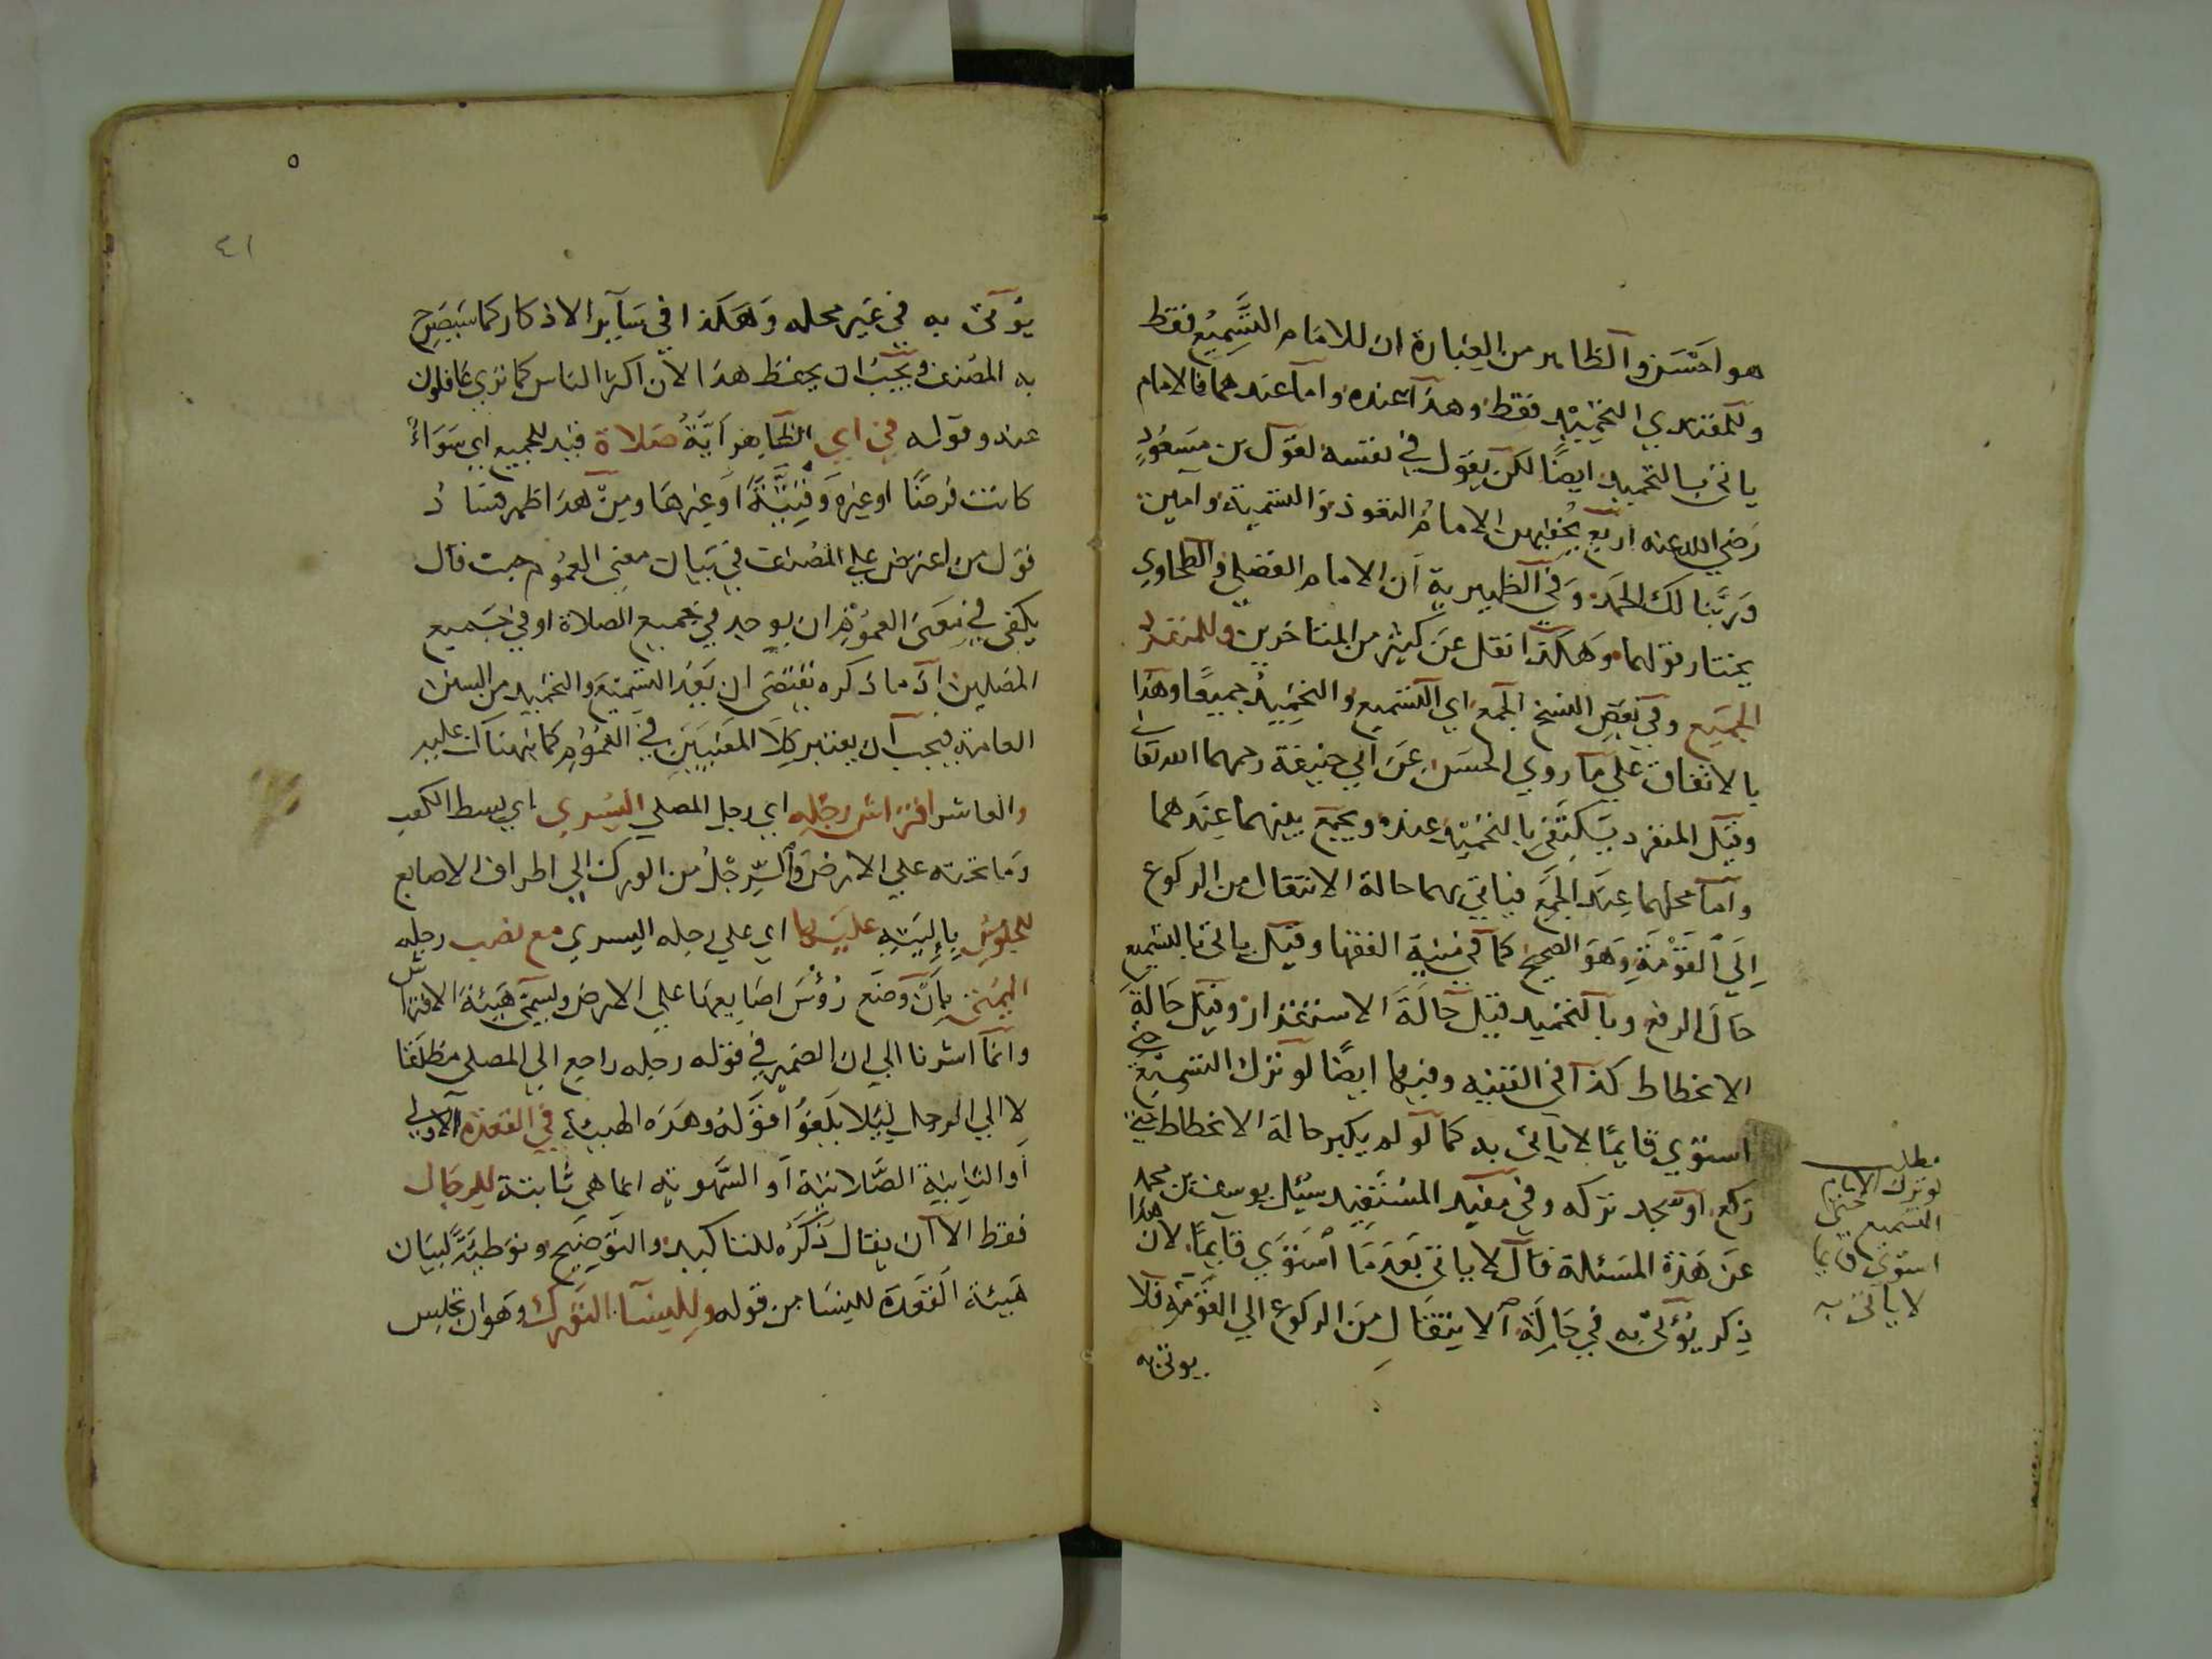 هو احسن والظاهر من العبارة ان للامام التسميع فقط
وللمقتدي التحميد فقط وهذا عنده واما عندهما فالامام
ياتي بالتحميد ايضًا لكن يقول في نفسه لقول بن مسعودٍ
رضي الله عنه اربع يخفيهن الامام التعوذ والتسمية وامين
وربنا لك الحمد وفي الظهيرية ان الامام الفضلي والطحاوي
يختار قولهما وهكذا نقل عن كثير من المتاخرين وللمنفرد
الجميع وفي بعض النسخ الجمع اي التسميع والتحميد جميعًا وهذا
بالاتفاق علي ما روي الحسن عن ابي حنيفة رحمهما الله تعالى
وقيل المنفرد يكتفي بالتحميد عنده ويجمع بينهما عندهما
واما محلهما عند الجمع فياتي بهما حالة الانتقال من الركوع
الي القومة وهو الصحيح كما في منية الفقها وقيل ياتي بالتسميع
حال الرفع وبالتحميد قبل حالة الاستقرار وقيل حالة
الانحطاط كذا في القنيه وفيها ايضًا لو ترك التسميع حتى
استوي قايمًا لا ياتي به كما لو لم يكبر حالة الانحطاط حتى
ركع او سجد تركه وفي مفيد المستفيد سئل يوسف بن محمد
عن هذة المسئلة فقال لا ياتي بعدما استوي قايمًا لان هذا
ذكر يؤتي به في حالة الانتقال من الركوع الي القومة فلا
يوتي به
مطلب
لو ترك الامام
التسميع حتى
استوى قايما
لا ياتي به
٥
٤١
يؤتى به في غير محله وهكذا في ساير الاذكار كما سيصرح
به المصنف ويجب ان يحفظ هذا لان اكثر الناس كما نري غافلون
عنه وقوله في اي الظاهر اية صلاة قيد للجميع اي سواءً
كانت فرضًا او غيره وقتية او غيرها ومن هذا ظهر فساد
قول من اعترض علي المصنف في بيان معني العموم حيث قال
يكفي في معنى العموم ان يوجد في جميع الصلاة او في جميع
المصلين اذ ما ذكره يقتضي ان يعد التسميع والتحميد من السنن
العامة فيجب ان يعتبر كلا المعنيين في العموم كما نبهناك عليه
والعاشر افتراش رجله اي رجل المصلي اليسري اي بسط الكعب
وما تحته علي الارض والرجل من الورك الي اطراف الاصابع
للجلوس باليتيه عليها اي علي رجله اليسري مع نصب رجله
اليمنى بان وضع رؤس اصابعها علي الارض ويسمى هيئة الافتراش
وانما اشرنا الي ان الضمير في قوله رجله راجع الي المصلي مطلقا
لا الي الرجل ليلا يلغو قوله وهذه الهيئة في القعدة الاولي
او الثانية الصلاتية او السهوية انما هي ثابتة للرجال
فقط الا ان يقال ذكره للتاكيد والتوضيح وتوطيةً لبيان
هيئة القعدة للنسا من قوله وللنسا التورك وهو ان تجلس